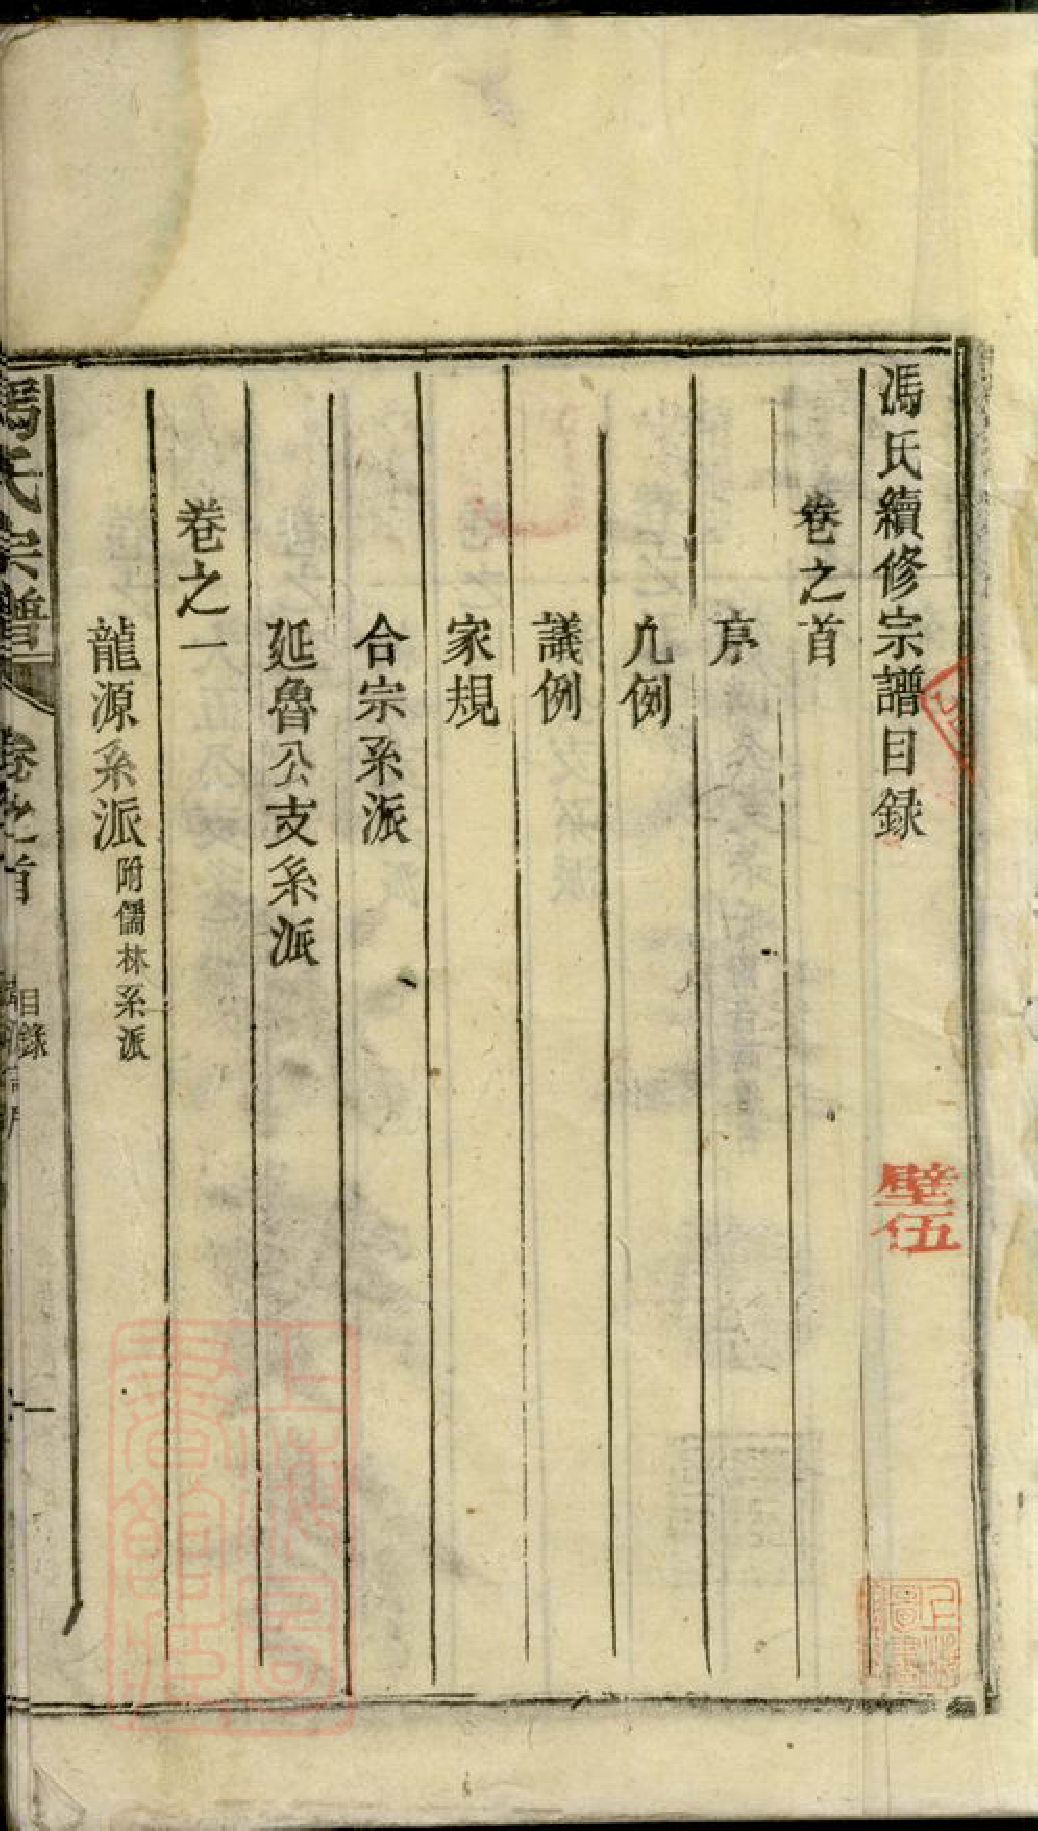 馮氏續修宗譜目録
卷之首
序
凢例
議例
家規
合宗系派
延魯公支系派
卷之一
龍源系派附儒林系派
馮氏宗譜
卷之首
目録
一
壁伍